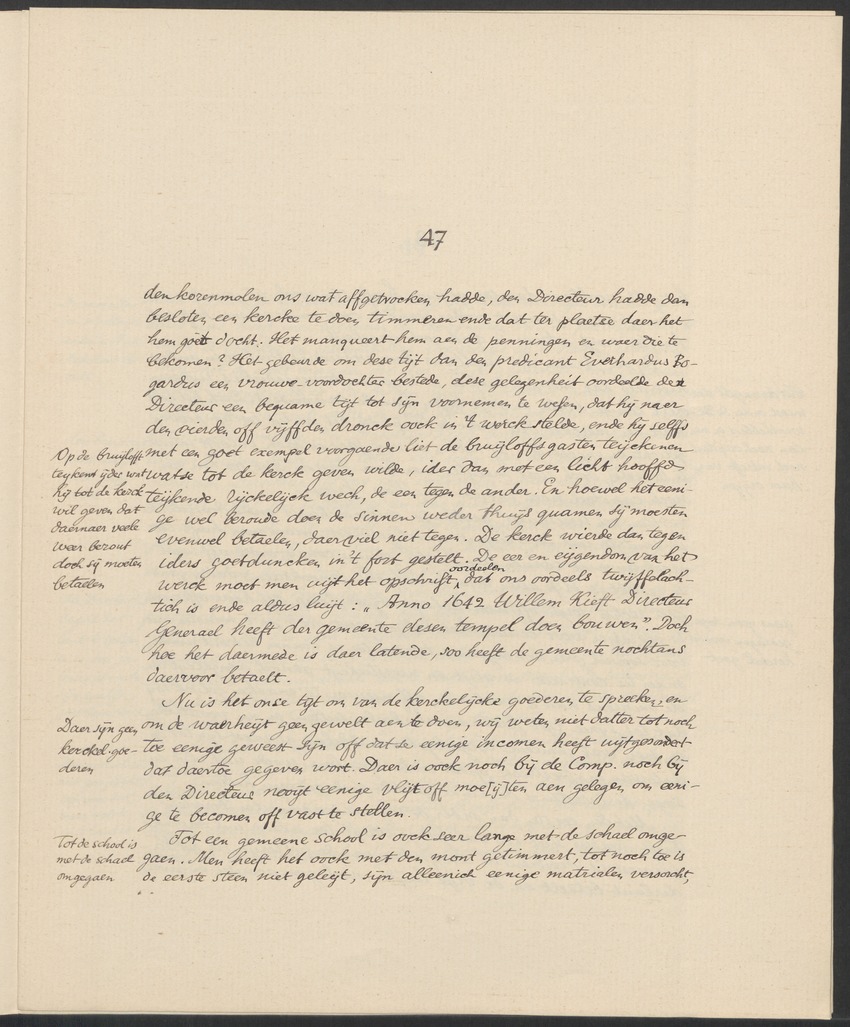 47
den korenmolen ons wat affgetrocken hadde, den Directeur hadde dan
besloten een kercke te doen timmeren ende dat ter plaetse daer het
hem goet docht. Het manqueert hem aen de penningen en waer die te
bekomen? Het gebeurde om dese tijt dan den predicant Everhardus Bo-
gardus een vrouwe-voordochter bestede, dese gelegenheit oordeelde de
Directeur een bequame tijt tot sijn voornemen te wesen, dat hij naer
den vierden off vijffden dronck oock in 't werck stelde, ende hij selffs
met een goet exempel voorgaende liet de bruijloffs gasten teijckenen
watse tot de kerck geven wilde, ider dan met een licht hooffd
teijkende rijckelijck wech, de een tegen de ander. En hoewel het eeni-
ge wel beroude doen de sinnen weder thuijs quamen sij moesten
evenwel betaelen, daer viel niet tegen. De kerck wierde dan tegen
iders goetduncken in 't fort gestelt. De eer en eijgendom van het
werck moet men uijt het opschrift oordeelen, dat ons oordeels twijffelach-
tich is ende aldus luijt: „Anno 1642 Willem Kieft Directeur
Generael heeft der gemeente desen tempel doen bouwen”. Doch
hoe het daermede is daer latende, soo heeft de gemeente nochtans
daervoor betaelt.
Op de bruijloff
teykent ijder wat
hij tot de kerck
wil geven dat
daernaer veele
weer berout
doch sij moeten
betaelen
Nu is het onse tijt om van de kerckelijcke goederen te spreeken, en
om de waerheijt geen gewelt aen te doen, wij weten niet datter tot noch
toe eenige geweest sijn off datse eenige incomen heeft uijtgesondert
dat daertoe gegeven wort. Daer is oock noch bij de Comp. noch bij
den Directeur nooijt eenige vlijt off moe[ij]ten aen gelegen om eeni-
ge te becomen off vast te stellen.
Daer sijn geen
kerckel. goe-
deren
Tot een gemeene School is oock seer lange met de schael omge-
gaen. Men heeft het oock met den mont getimmert, tot noch toe is
de eerste steen niet geleijt, sijn alleenich eenige matrialen versorcht,
Tot de school is
met de schael
omgegaen